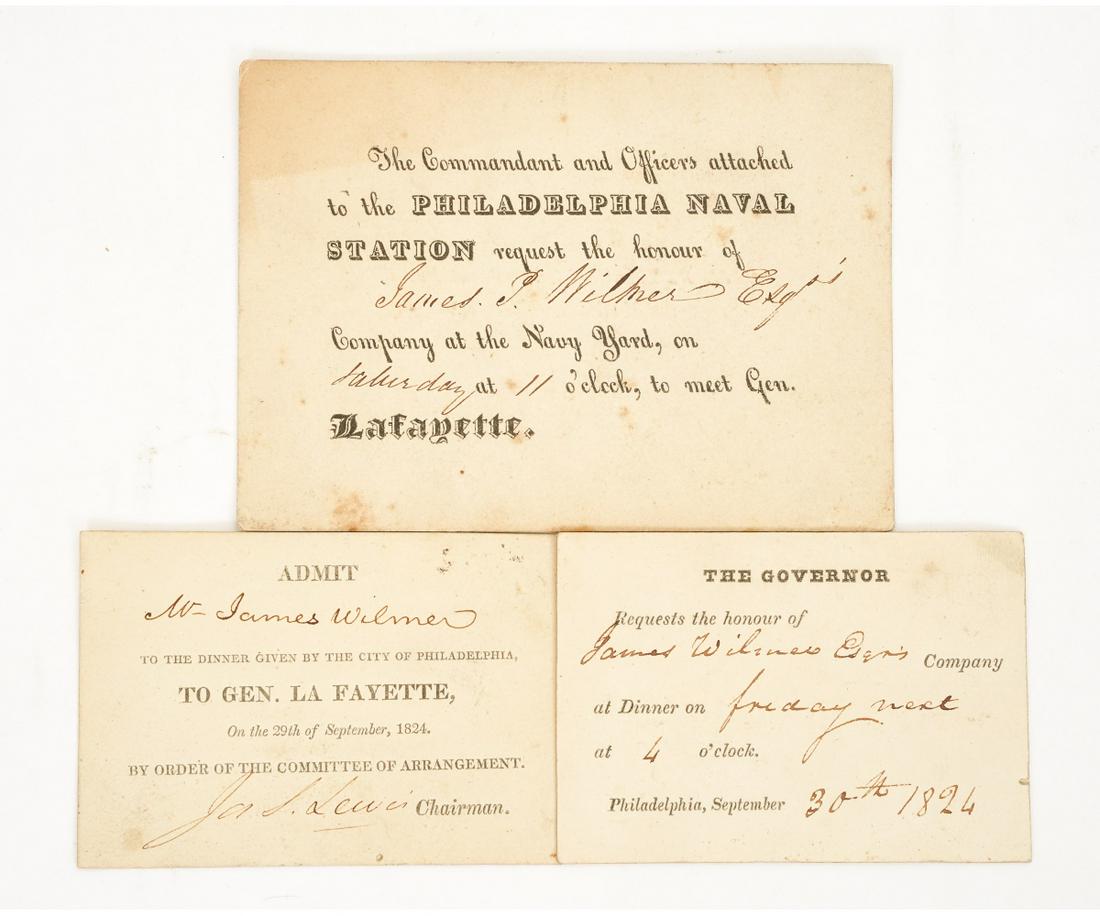 The Commandant and Officers attached
to the PHILADELPHIA NAVAL
STATION request the honour of
James. P. Wilmer Esqr's
Company at the Navy Yard, on
Saturday at 11 o'clock, to meet Gen.
Lafayette.
ADMIT
Mr James Wilmer
TO THE DINNER GIVEN BY THE CITY OF PHILADELPHIA,
TO GEN. LA FAYETTE,
On the 29th of September, 1824.
BY ORDER OF THE COMMITTEE OF ARRANGEMENT.
Jos S. Lewis Chairman.
THE GOVERNOR
Requests the honour of
James Wilmer Esqr's Company
at Dinner on friday next
at 4 o'clock.
Philadelphia, September 30th 1824